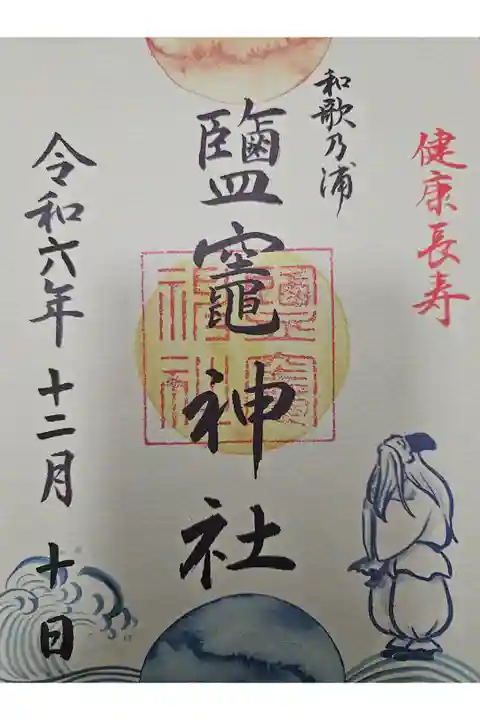 健康長寿
和歌乃浦
鹽竈神社
令和六年十二月十日